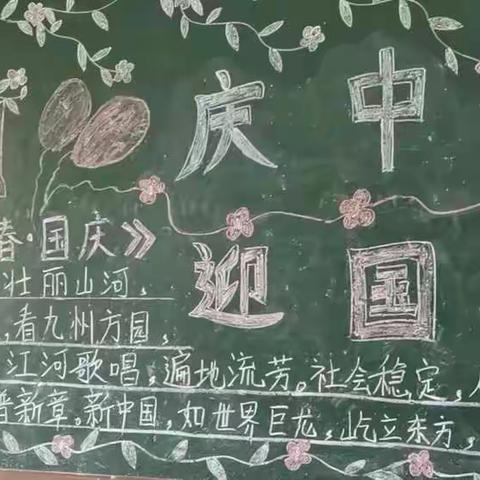 庆 中
迎 国
春·国庆》
壮丽山河，
，看九州方园，
江河歌唱，遍地流芳。社会稳定，
普新章。新中国，如世界巨龙，屹立东方，